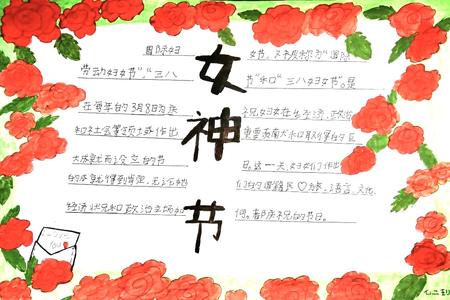 女神节
国际妇女节,又被称为"国际
劳动妇女节"、"三八节"和"三八妇女节"。是
在每年的3月8日为庆祝妇女在经济,政治
和社会等领域作出重要贡献和取得的巨
大成就而设立的节日。这一天,妇女们作出
的成就得到肯定,无论她们的国籍民♡为族,语言,文化,
经济状况和政治立场如何。都庆祝的节日。